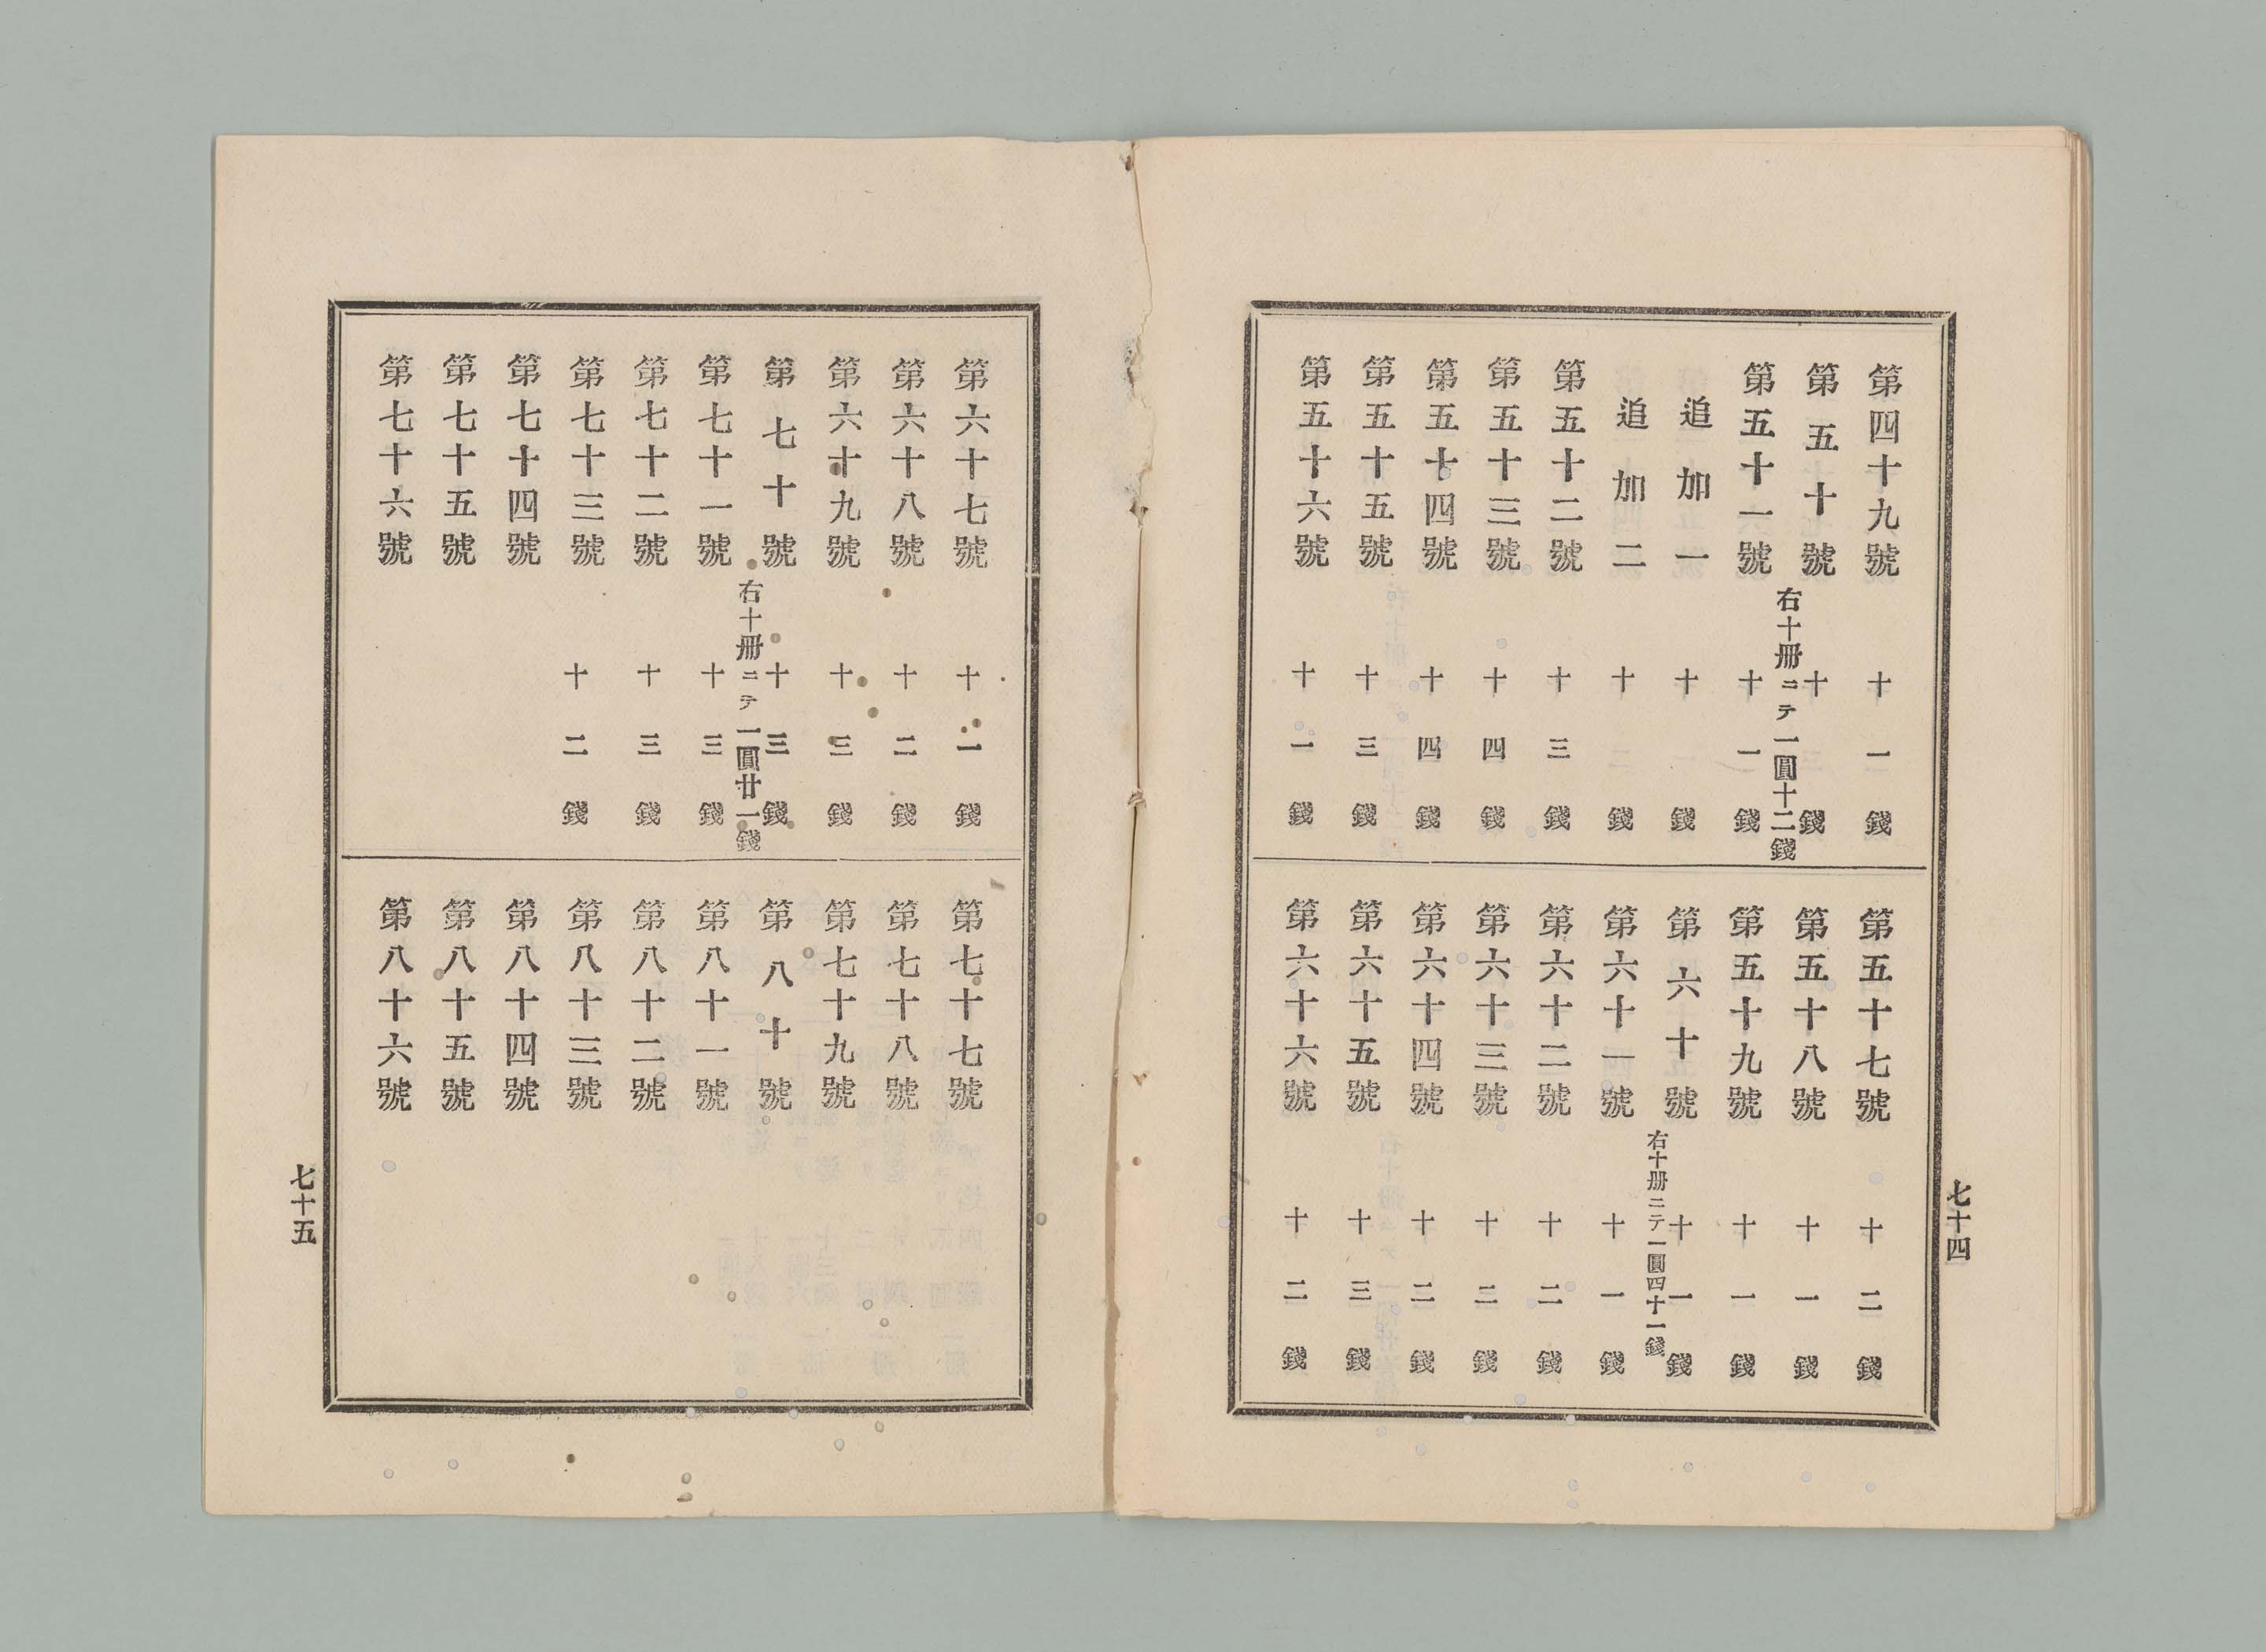 第四十九號 十一錢
第五十號 十錢
右十冊ニテ一圓十二錢
第五十一號 十一錢
追加一 十錢
追加二 十錢
第五十二號 十三錢
第五十三號 十四錢
第五十四號 十四錢
第五十五號 十三錢
第五十六號 十一錢
第五十七號 十二錢
第五十八號 十一錢
第五十九號 十一錢
第六十號 十一錢
右十册ニテ一圓四十一錢
第六十一號 十一錢
第六十二號 十二錢
第六十三號 十二錢
第六十四號 十二錢
第六十五號 十三錢
第六十六號 十二錢
七十四
第六十七號 十一錢
第六十八號 十二錢
第六十九號 十三錢
第七十號 十三錢
右十冊ニテ一圓廿一錢
第七十一號 十三錢
第七十二號 十三錢
第七十三號 十二錢
第七十四號
第七十五號
第七十六號
第七十七號
第七十八號
第七十九號
第八十號
第八十一號
第八十二號
第八十三號
第八十四號
第八十五號
第八十六號
七十五